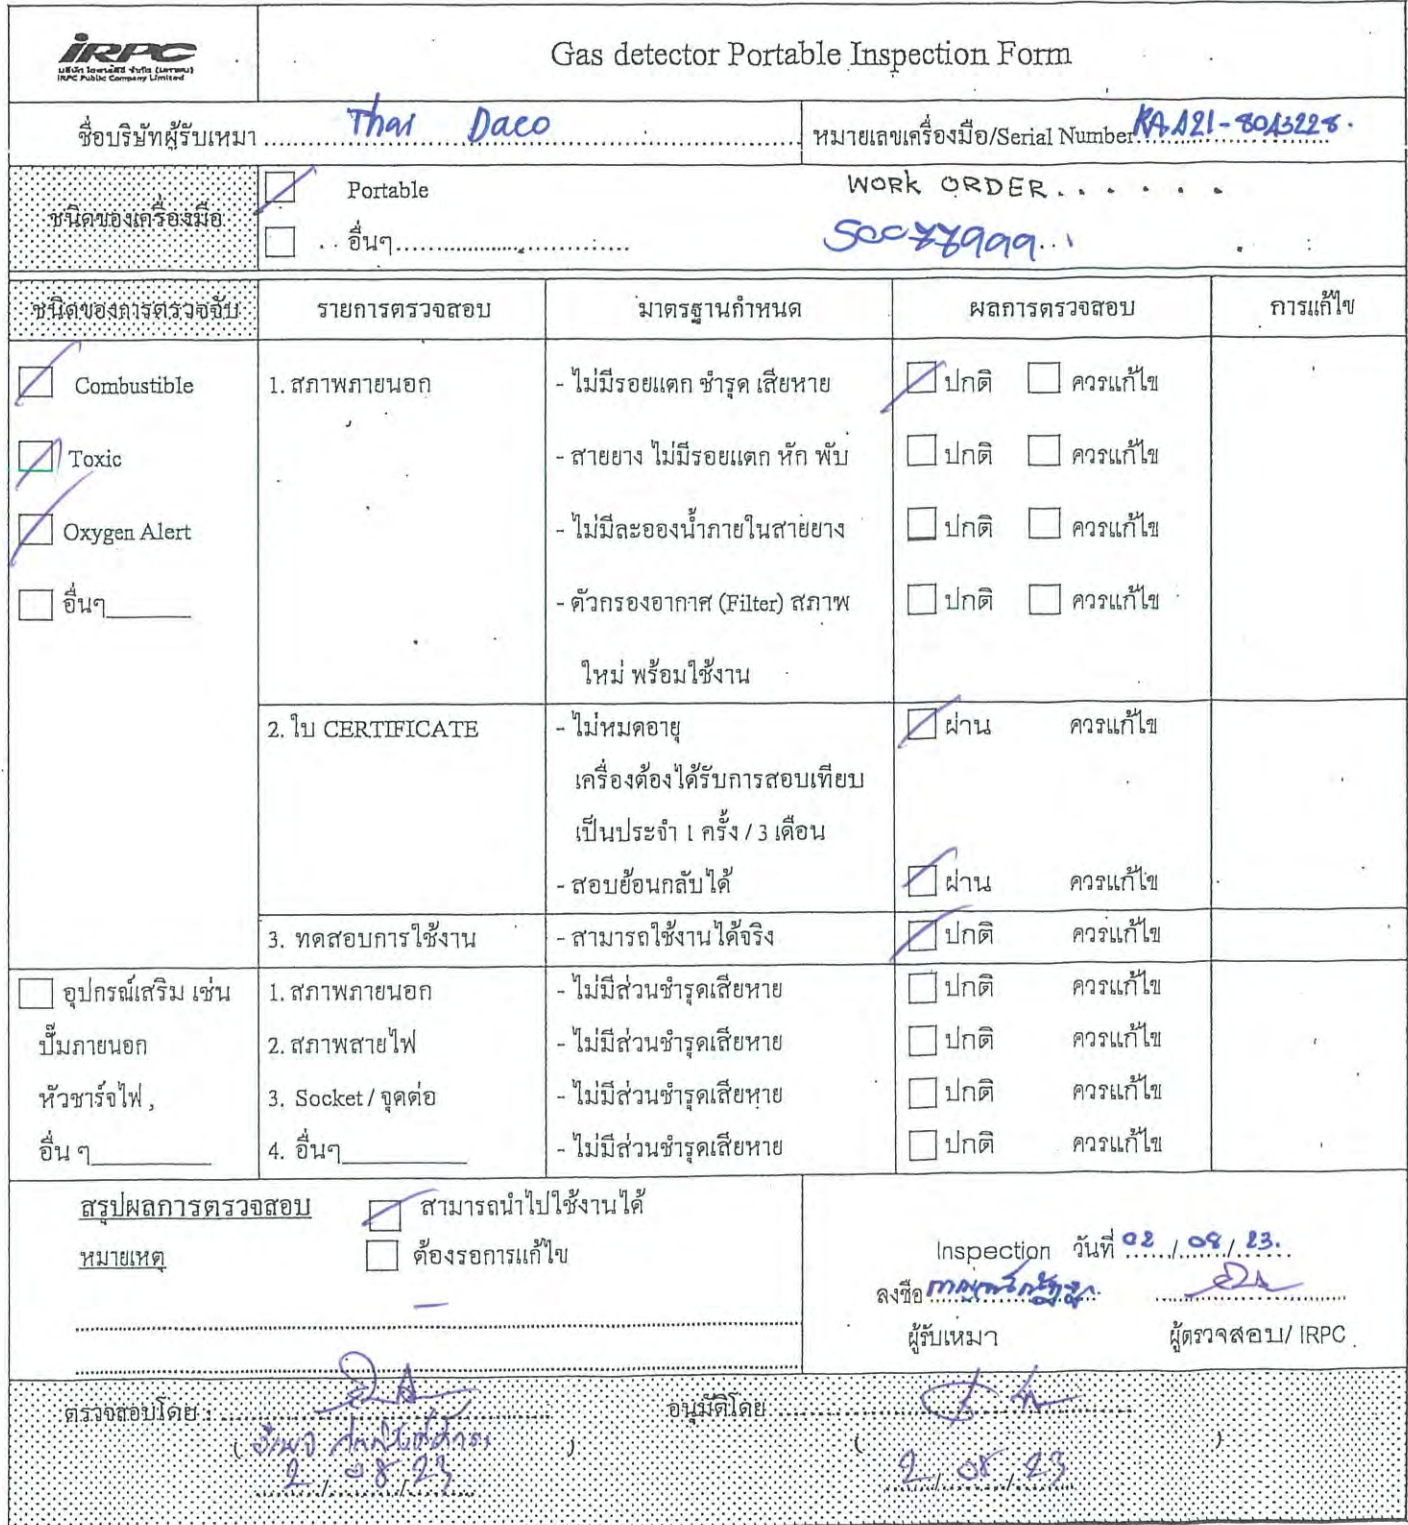 IRPC
บริษัท ไออาร์พีซี จำกัด (มหาชน)
IRPC Public Company Limited
Gas detector Portable Inspection Form
ชื่อบริษัทผู้รับเหมา Thai Daco หมายเลขเครื่องมือ/Serial Number
ชนิดของเครื่องมือ
Portable
WORK ORDER......
อื่นๆ
ชนิดของการตรวจจับ รายการตรวจสอบ มาตรฐานกำหนด ผลการตรวจสอบ การแก้ไข
Combustible 1. สภาพภายนอก - ไม่มีรอยแตก ชำรุด เสียหาย ปกติ ควรแก้ไข
Toxic - สายยาง ไม่มีรอยแตก หัก พับ ปกติ ควรแก้ไข
Oxygen Alert - ไม่มีละอองน้ำภายในสายยาง ปกติ ควรแก้ไข
อื่นๆ - ตัวกรองอากาศ (Filter) สภาพ ปกติ ควรแก้ไข
ใหม่ พร้อมใช้งาน
2. ใบ CERTIFICATE - ไม่หมดอายุ ผ่าน ควรแก้ไข
เครื่องต้องได้รับการสอบเทียบ
เป็นประจำ 1 ครั้ง / 3 เดือน
- สอบย้อนกลับได้ ผ่าน ควรแก้ไข
3. ทดสอบการใช้งาน - สามารถใช้งานได้จริง ปกติ ควรแก้ไข
อุปกรณ์เสริม เช่น 1. สภาพภายนอก - ไม่มีส่วนชำรุดเสียหาย ปกติ ควรแก้ไข
ปั๊มภายนอก 2. สภาพสายไฟ - ไม่มีส่วนชำรุดเสียหาย ปกติ ควรแก้ไข
หัวชาร์จไฟ , 3. Socket / จุดต่อ - ไม่มีส่วนชำรุดเสียหาย ปกติ ควรแก้ไข
อื่น ๆ 4. อื่นๆ - ไม่มีส่วนชำรุดเสียหาย ปกติ ควรแก้ไข
สรุปผลการตรวจสอบ สามารถนำไปใช้งานได้
หมายเหตุ ต้องรอการแก้ไข
Inspection วันที่ 02 / 08 / 23.
ลงชื่อ
ผู้รับเหมา ผู้ตรวจสอบ/ IRPC
ตรวจสอบโดย : อนุมัติโดย
2 / 08 / 23 2 / 08 / 23